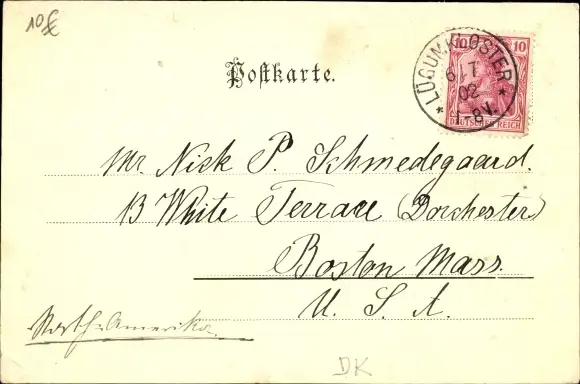 10€
Postkarte.
10
LÜGUMKLOSTER
02
1-8V.
DEUTSCHES REICH
Mr. Nick P. Schmedegaard.
13 White Terrace (Dorchester)
Boston Mass.
U. S. A.
North-Amerika.
DK